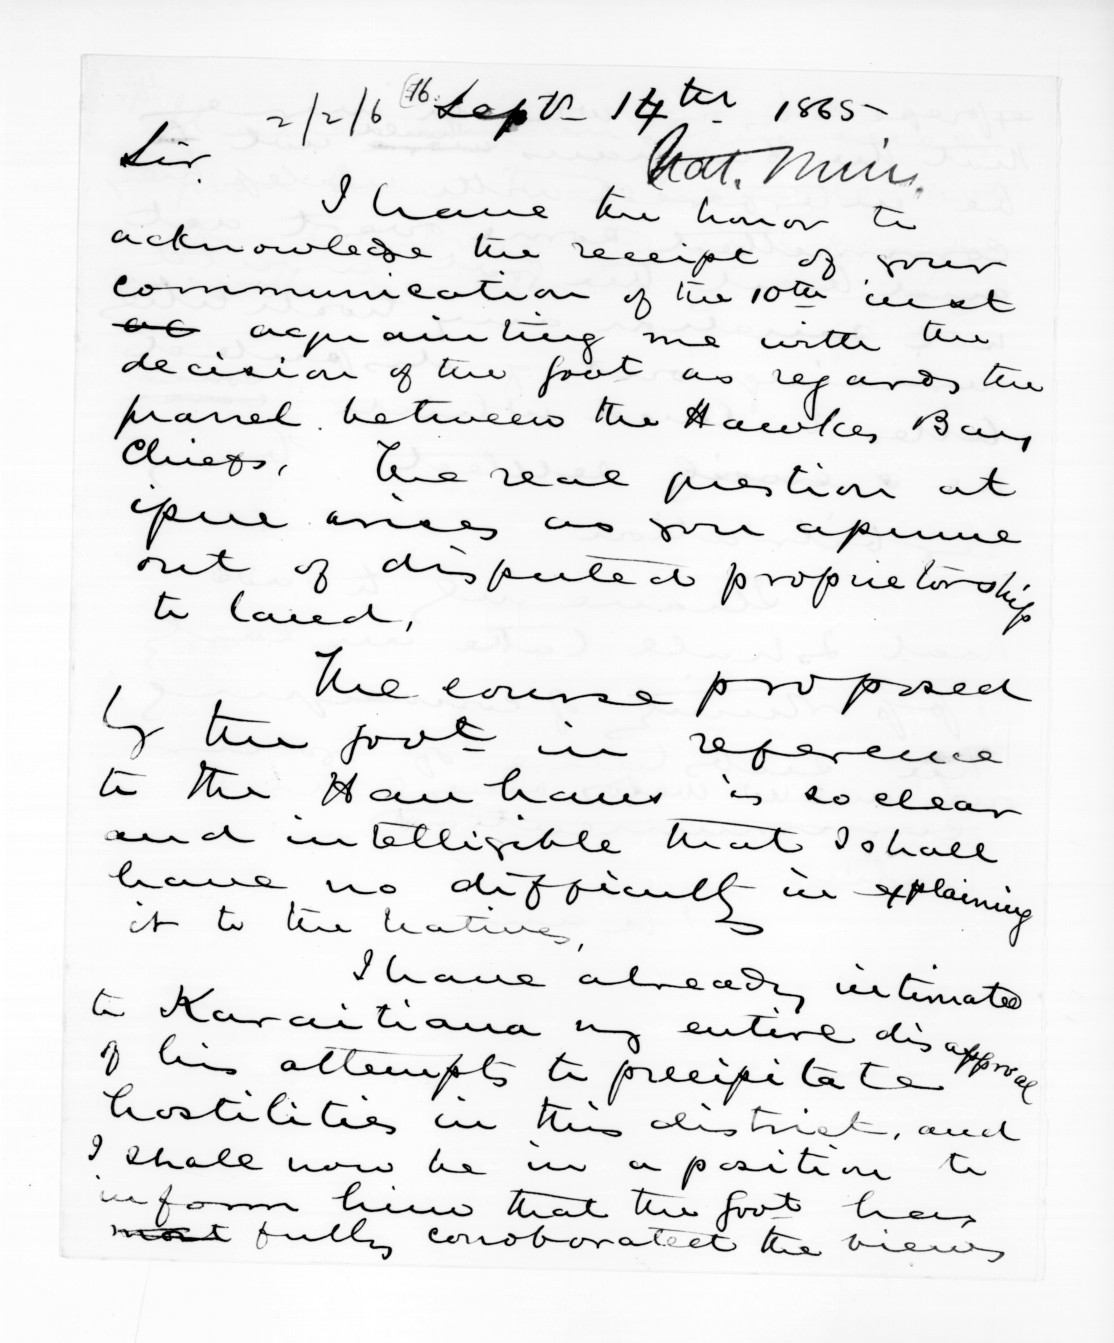 2/2/6 Septr 14th 1865
Nat. Minr.
Sir.
I have the honor to
acknowledge the receipt of your
communication of the 10th inst
acquainting me with the
decision of the Govt as regards the
quarrel between the Hawkes Bay
Chiefs. The real question at
issue arises as you assume
out of disputed proprietorship
to land.
The course proposed
by the Govt in reference
to the Hau haus is so clear
and intelligible that I shall
have no difficulty in explaining
it to the Natives.
I have already intimated
to Karaitiana my entire disapproval
of his attempts to precipitate
hostilities in this district, and
I shall now be in a position to
inform him that the Govt has
most fully corroborated the views